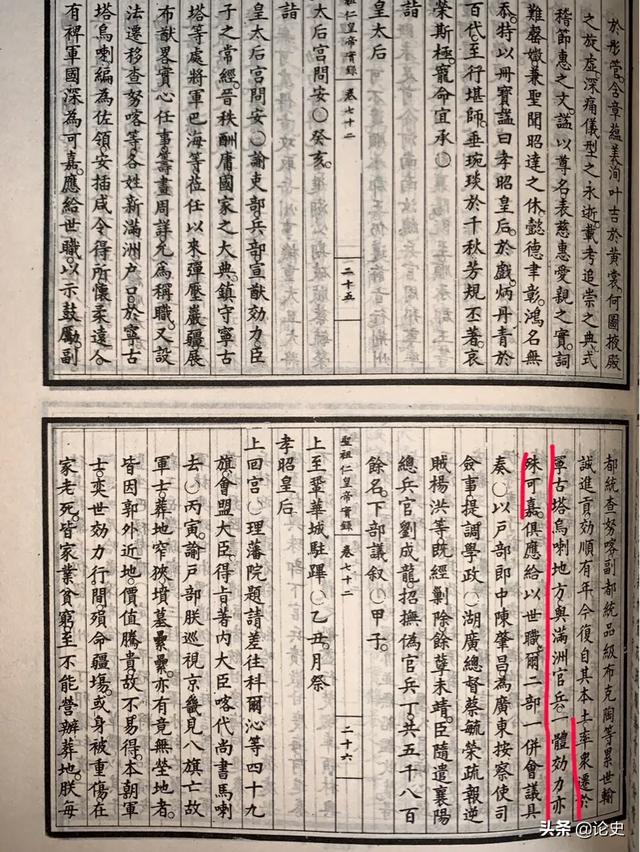 於彤管含章蘊美洵叶吉於黃裳何圖掖殿
之旋虛深痛儀型之永逝載考追崇之典式
稽節惠之文謚以尊名表慈惠愛親之實詞
難罄媺兼聖聞昭達之休懿德聿彰鴻名無
忝特以冊寶謚曰孝昭皇后於戲炳丹青於
百代至行堪師垂琬琰於千秋芳規丕著哀
榮斯極寵命宜承〇
皇太后
詣
聖祖仁皇帝實錄 卷七十二 二十五
太后宮問安〇癸亥
詣
皇太后宮問安〇諭吏部兵部宣猷効力臣
子之常經晉秩酬庸國家之大典鎮守寧古
塔等處將軍巴海等莅任以來彈壓巖疆展
布猷畧實心任事籌畫周詳允為稱職又設
法遷移查努喀等各姓新滿洲户口於寧古
塔烏喇編為佐領安插咸令得所懷柔遠人
有裨軍國深為可嘉應給世職以示鼓勵副
都統查努喀副都統品級布克陶等累世輸
誠進貢効順有年今復自其本土率衆遷於
寧古塔烏喇地方與滿洲官兵一體効力亦
殊可嘉俱應給以世職爾二部一併會議具
奏〇以户部郎中陳肇昌為廣東按察使司
僉事提調學政〇湖廣總督蔡毓榮疏報逆
賊楊洪等既經剿除餘孽未靖臣隨遣襄陽
總兵官劉成龍招撫偽官兵丁共五千八百
餘名下部議叙〇甲子
聖祖仁皇帝實錄 卷七十二 二十六
上至鞏華城駐蹕〇乙丑月祭
孝昭皇后
上回宮〇理藩院題請差往科爾沁等四十九
旗會盟大臣得旨著內大臣喀代尚書馬喇
去〇丙寅諭户部朕巡視京畿見八旗亡故
軍士葬地窄狹墳墓纍纍亦有竟無坐地者
皆因郭外近地價值騰貴故不易得本朝軍
士奕世効力行間殞命疆場或身被重傷在
家老死皆家業貧窮至不能營辦葬地朕每
头条 @论史